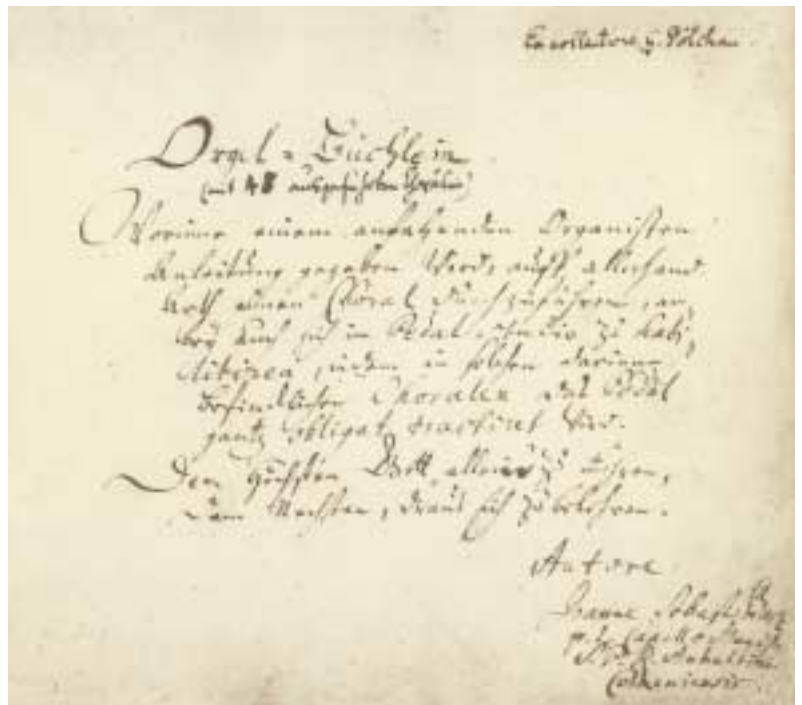 Ex collectione G. Pölchau.
Orgel-Büchlein
(mit 48 ausgeführten Chorälen)
Worinne einem anfahenden Organisten
Anleitung gegeben wird, auff allerhand
Arth einen Choral durchzuführen, an-
bey auch sich im Pedal studio zu habi-
litiren, indem in solchen darinne
befindlichen Choralen das Pedal
gantz obligat tractiret wird.
Dem Höchsten Gott allein zu Ehren,
Dem Nechsten, draus sich zu belehren.
Autore
Joanne Sebast. Bach
p. t. Capellae Magistri
S. P. R. Anhaltini-
Cotheniensis.